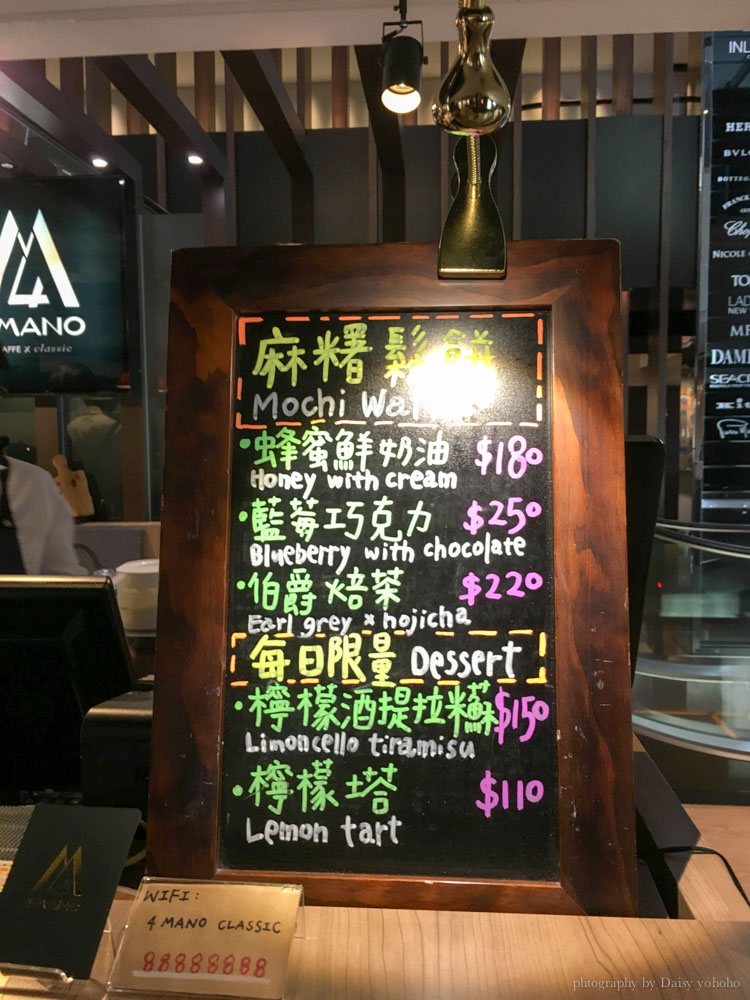 4MANO
CAFFÈ X classic
麻糬鬆餅
Mochi
・蜂蜜鮮奶油 $180
Honey with cream
・藍莓巧克力 $250
Blueberry with chocolate
・伯爵焙茶 $220
Earl grey × hojicha
每日限量 Dessert
・檸檬酒提拉米蘇 $150
Limoncello tiramisu
・檸檬塔 $110
Lemon tart
WIFI:
4 MANO CLASSIC
88888888
4MANO
INL
HER
BVLG
BOTTEG
FRANCK
Cho
NICOLE
TO
LAD
NEW
MR
DAMI
SEAC
Ki
photography by Daisy yohoho